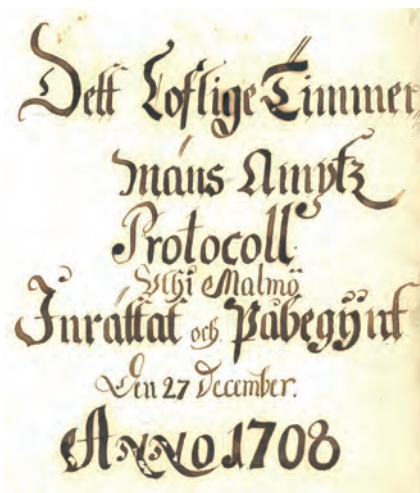 Dett Loflige Timmer
mans Ampts
Protocoll
Uthi Malmö
Inrättat och Påbegÿnt
Den 27 December.
ANNO 1708